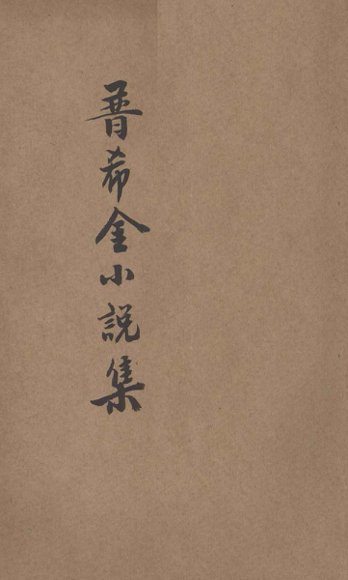 普希金小説集